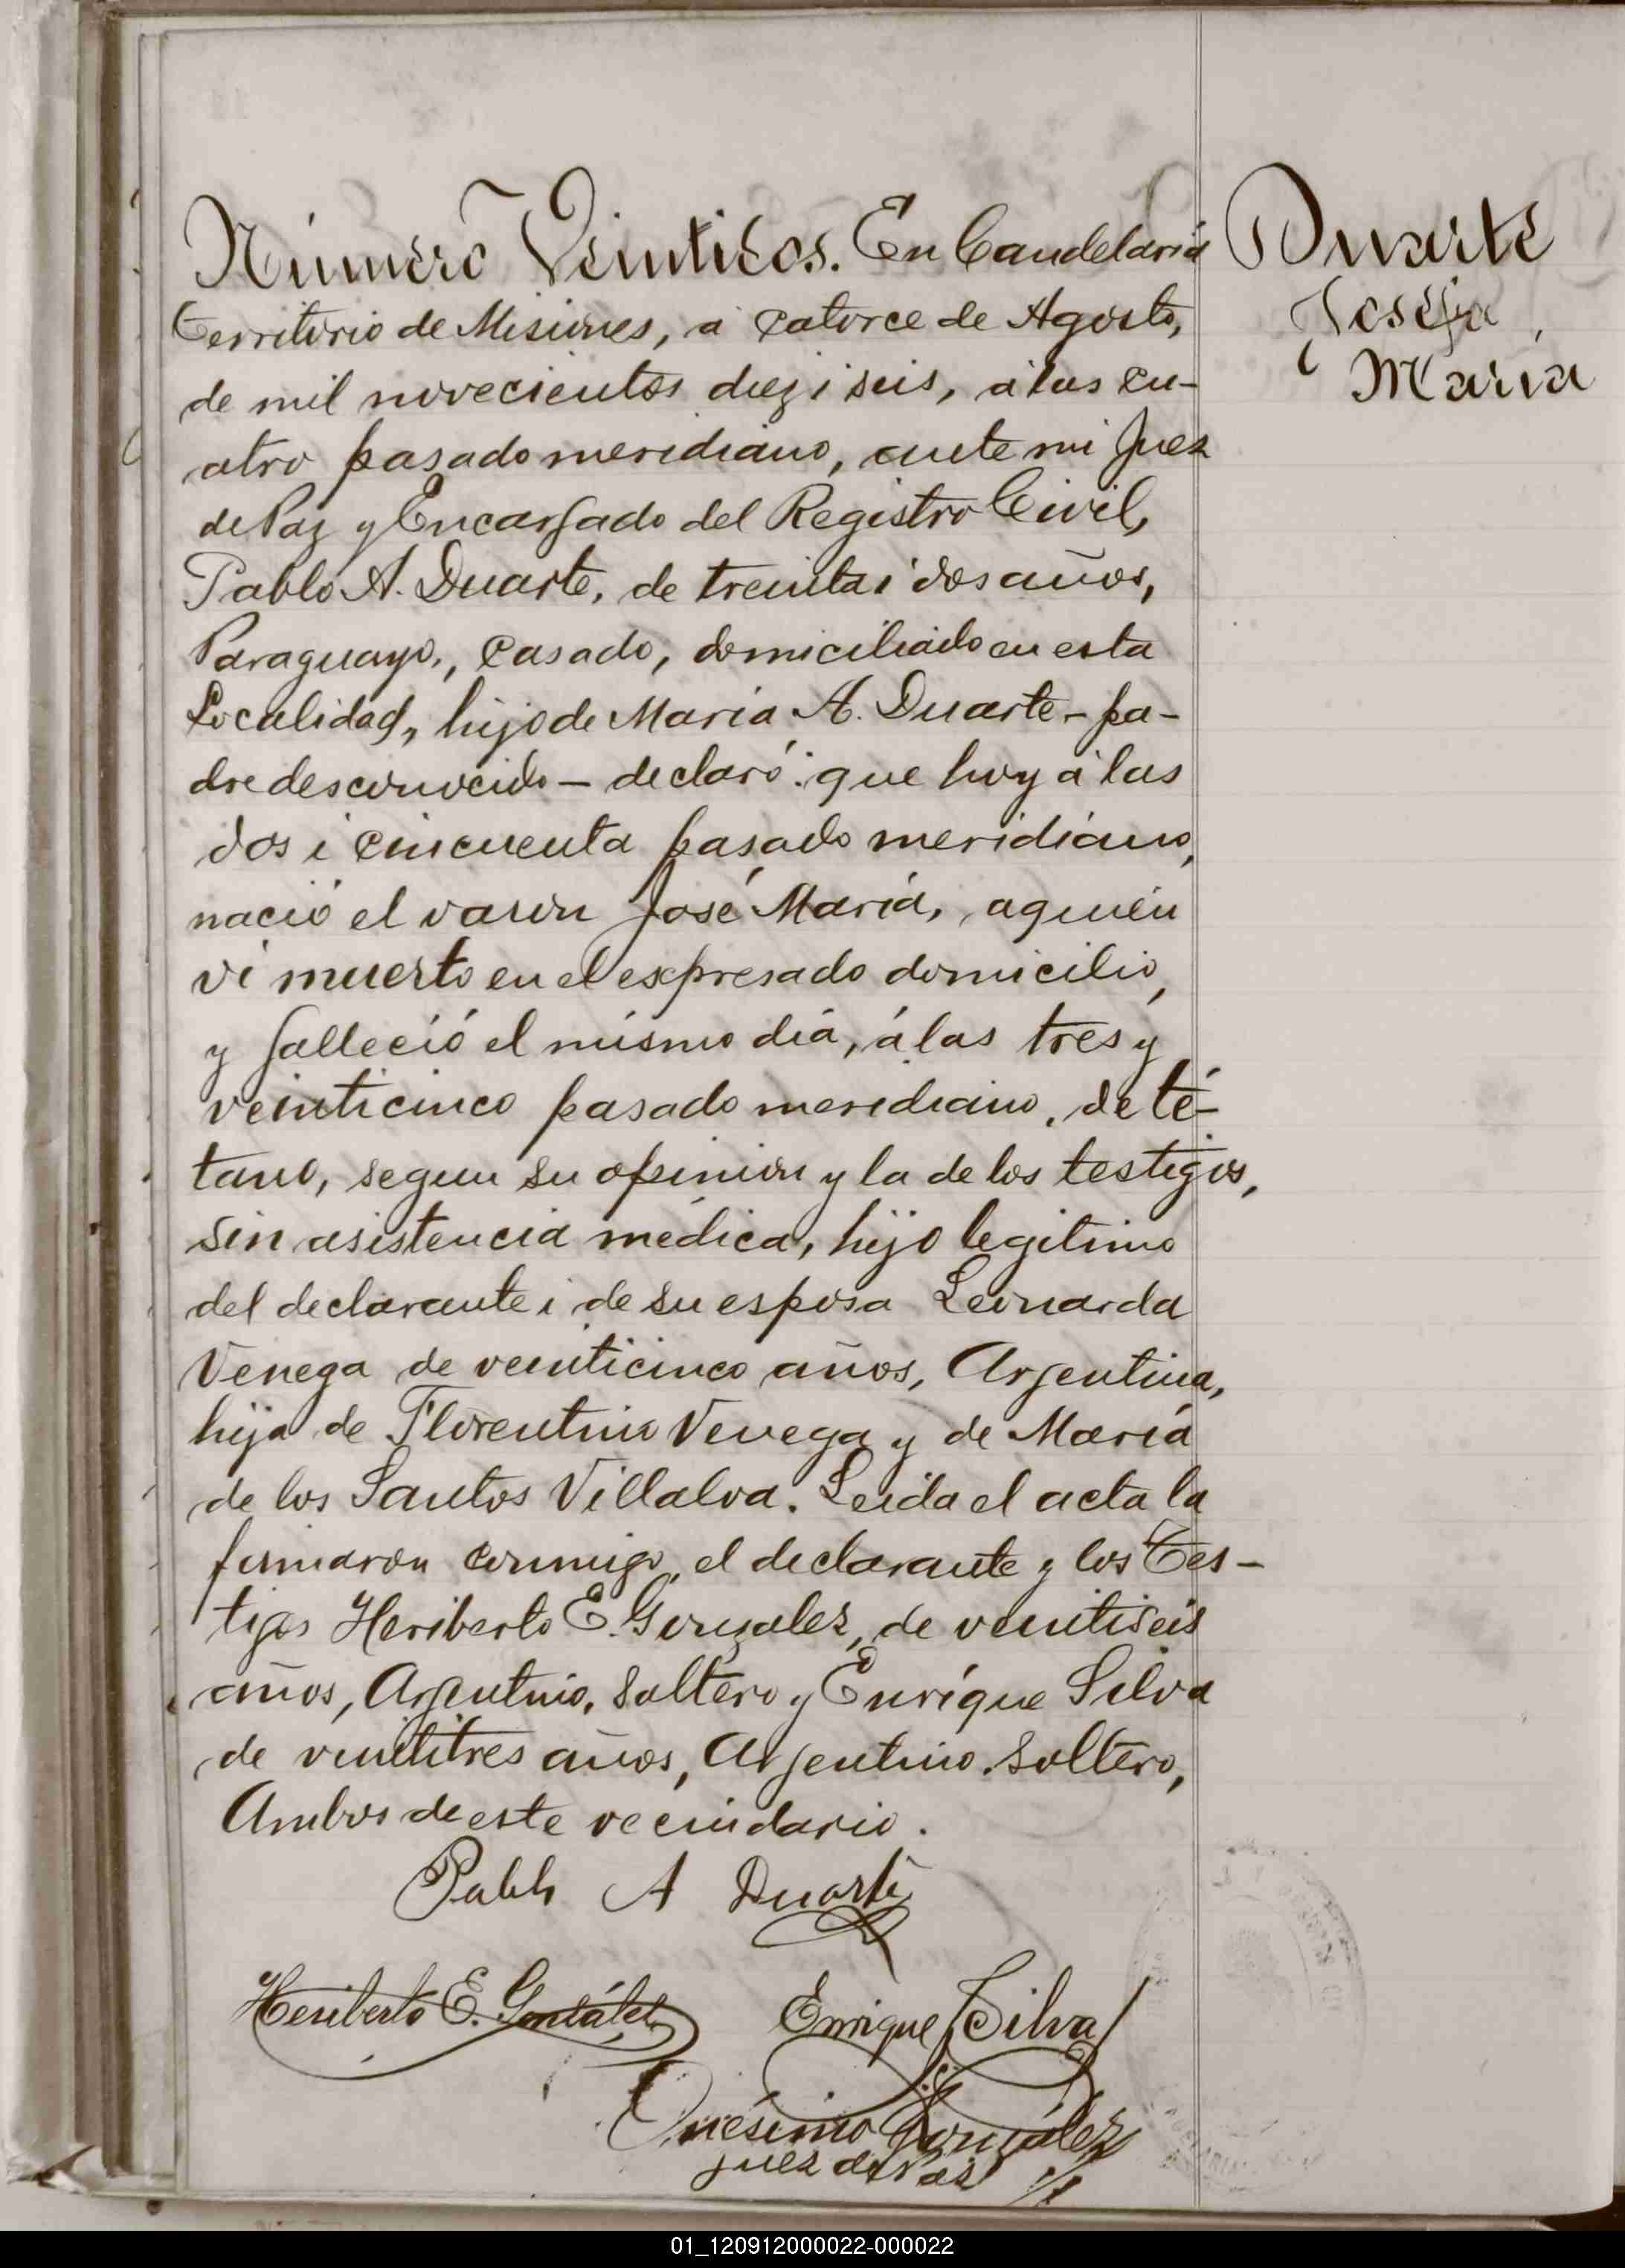 Número Veintidos. En Candelaria
Territorio de Misiones, a catorce de Agosto,
de mil novecientos diez i seis, á las cu-
atro pasado meridiano, ante mi Juez
de Paz y Encargado del Registro Civil,
Pablo A. Duarte, de treinta i dos años,
Paraguayo, casado, domiciliado en esta
Localidad, hijo de María A. Duarte - pa-
dre desconocido - declaró: que hoy á las
dos i cincuenta pasado meridiano,
nació el varon José María, a quién
vi muerto en el expresado domicilio,
y falleció el mismo dia, á las tres y
veinticinco pasado meridiano, de té-
tano, segun su opinion y la de los testigos,
sin asistencia médica, hijo legitimo
del declarante i de su esposa Leonarda
Venega de veinticinco años, Argentina,
hija de Florentino Venega y de María
de los Santos Villalva. Leida el acta la
firmaron conmigo, el declarante y los Tes-
tigos Heriberto E. Gonzalez, de veintiseis
años, Argentino, Soltero y Enríque Silva
de veintitres años, Argentino, Soltero,
Ambos de este vecindario.
Pablo A Duarte
Heriberto E. González
Enrique Silva
Onésimo González
Juez de Paz
Duarte
José
María
01_120912000022-000022